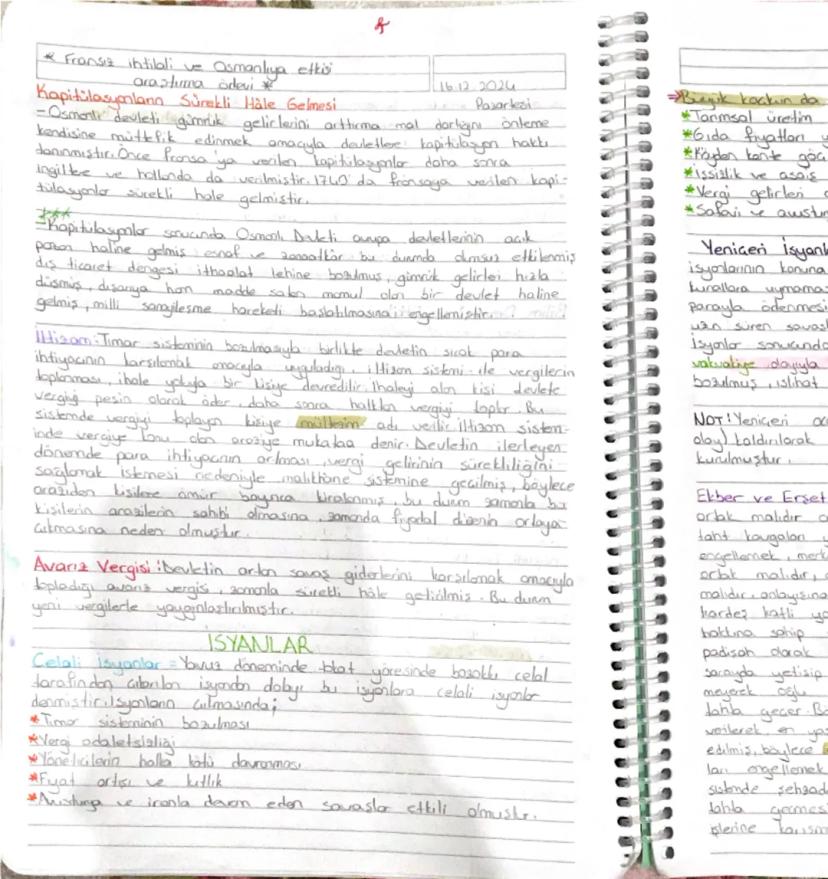 * Fransız ihtilali ve Osmanlıya etkisi
araştırma ödevi *
16.12.2024
Pazartesi
Kapitülasyonların Sürekli Hâle Gelmesi
= Osmanlı devleti gümrük gelirlerini arttırma mal darlığını önleme
kendisine müttefik edinmek amacıyla devletlere kapitülasyon hakkı
tanınmıştır. Önce Fransa'ya verilen kapitülasyonlar daha sonra
ingiltere ve hollanda da verilmiştir. 1740'da fransaya verilen kapi-
tülasyonlar sürekli hale gelmiştir.
***
= Kapitülasyonlar sonucunda Osmanlı Devleti avrupa devletlerinin açık
pazarı haline gelmiş esnaf ve zanaatkâr bu durumda olumsuz etkilenmiş
dış ticaret dengesi ithalat lehine bozulmuş, gümrük gelirleri hızla
düşmüş, dışarıya ham madde satan mamul alan bir devlet haline
gelmiş, milli sanayileşme hareketi başlatılmasını engellemiştir.
İltizam: Tımar sisteminin bozulmasıyla birlikte devletin sıcak para
ihtiyacının karşılamak amacıyla uyguladığı, iltizam sistemi ile vergilerin
toplanması, ihale yoluyla bir kişiye devredilir. İhaleyi alan kişi devlete
vergiyi peşin olarak öder, daha sonra halktan vergiyi toplar. Bu
sistemde vergiyi toplayan kişiye mültezim adı verilir. İltizam sistem-
inde vergiye konu olan araziye mukataa denir. Devletin ilerleyen
dönemde para ihtiyacının artması, vergi gelirinin sürekliliğini
sağlamak istemesi nedeniyle malikhâne sistemine geçilmiş, böylece
araziden kişilere ömür boyunca kiralanmış, bu durum zamanla bu
kişilerin arazilerin sahibi olmasına, zamanda fiyodal düzenin ortaya
çıkmasına neden olmuştur.
Avarız Vergisi: Devletin artan savaş giderlerini karşılamak amacıyla
topladığı avarız vergisi, zamanla sürekli hâle getirilmiş. Bu durum
yeni vergilerle yaygınlaştırılmıştır.
İSYANLAR
Celali isyanlar = Yavuz döneminde tokat yöresinde bozoklu celal
tarafından çıkarılan isyandan dolayı bu isyanlara celali isyanlar
denmiştir. İsyanların çıkmasında;
* Tımar sisteminin bozulması
* Vergi adaletsizliği
* Yöneticilerin halka kötü davranması
* Fiyat artışı ve kıtlık
* Avusturya ve iranla devam eden savaşlar etkili olmuştur.
⇒ Büyük kaçkun da
* Tarımsal üretim
* Gıda fiyatları
* Köyden kente göç
* işsizlik ve asayiş
* Vergi gelirleri
* Safavi ve avustur
Yeniçeri İsyanl
isyanlarının konuna
kurallara uymama
parayla ödenmesi
uzun süren savaş
isyanlar sonucunda
vakvakiye olayıyla
bozulmuş, ıslihat
NOT: Yeniçeri oc
olay) kaldırılarak
kurulmuştur.
Ekber ve Erşet
ortak malıdır
taht kavgaları
engellemek, merk
ortak malıdır,
malıdır, anlayışına
kardeş katli
hakkına sahip
padişah olarak
sarayda yetişip
meyerek oğlu
tahta geçer.
verilerek, en yaş
edilmiş, böylece
ları engellemek
sistemde şehzad
tahta geçmesi
işlerine karışm